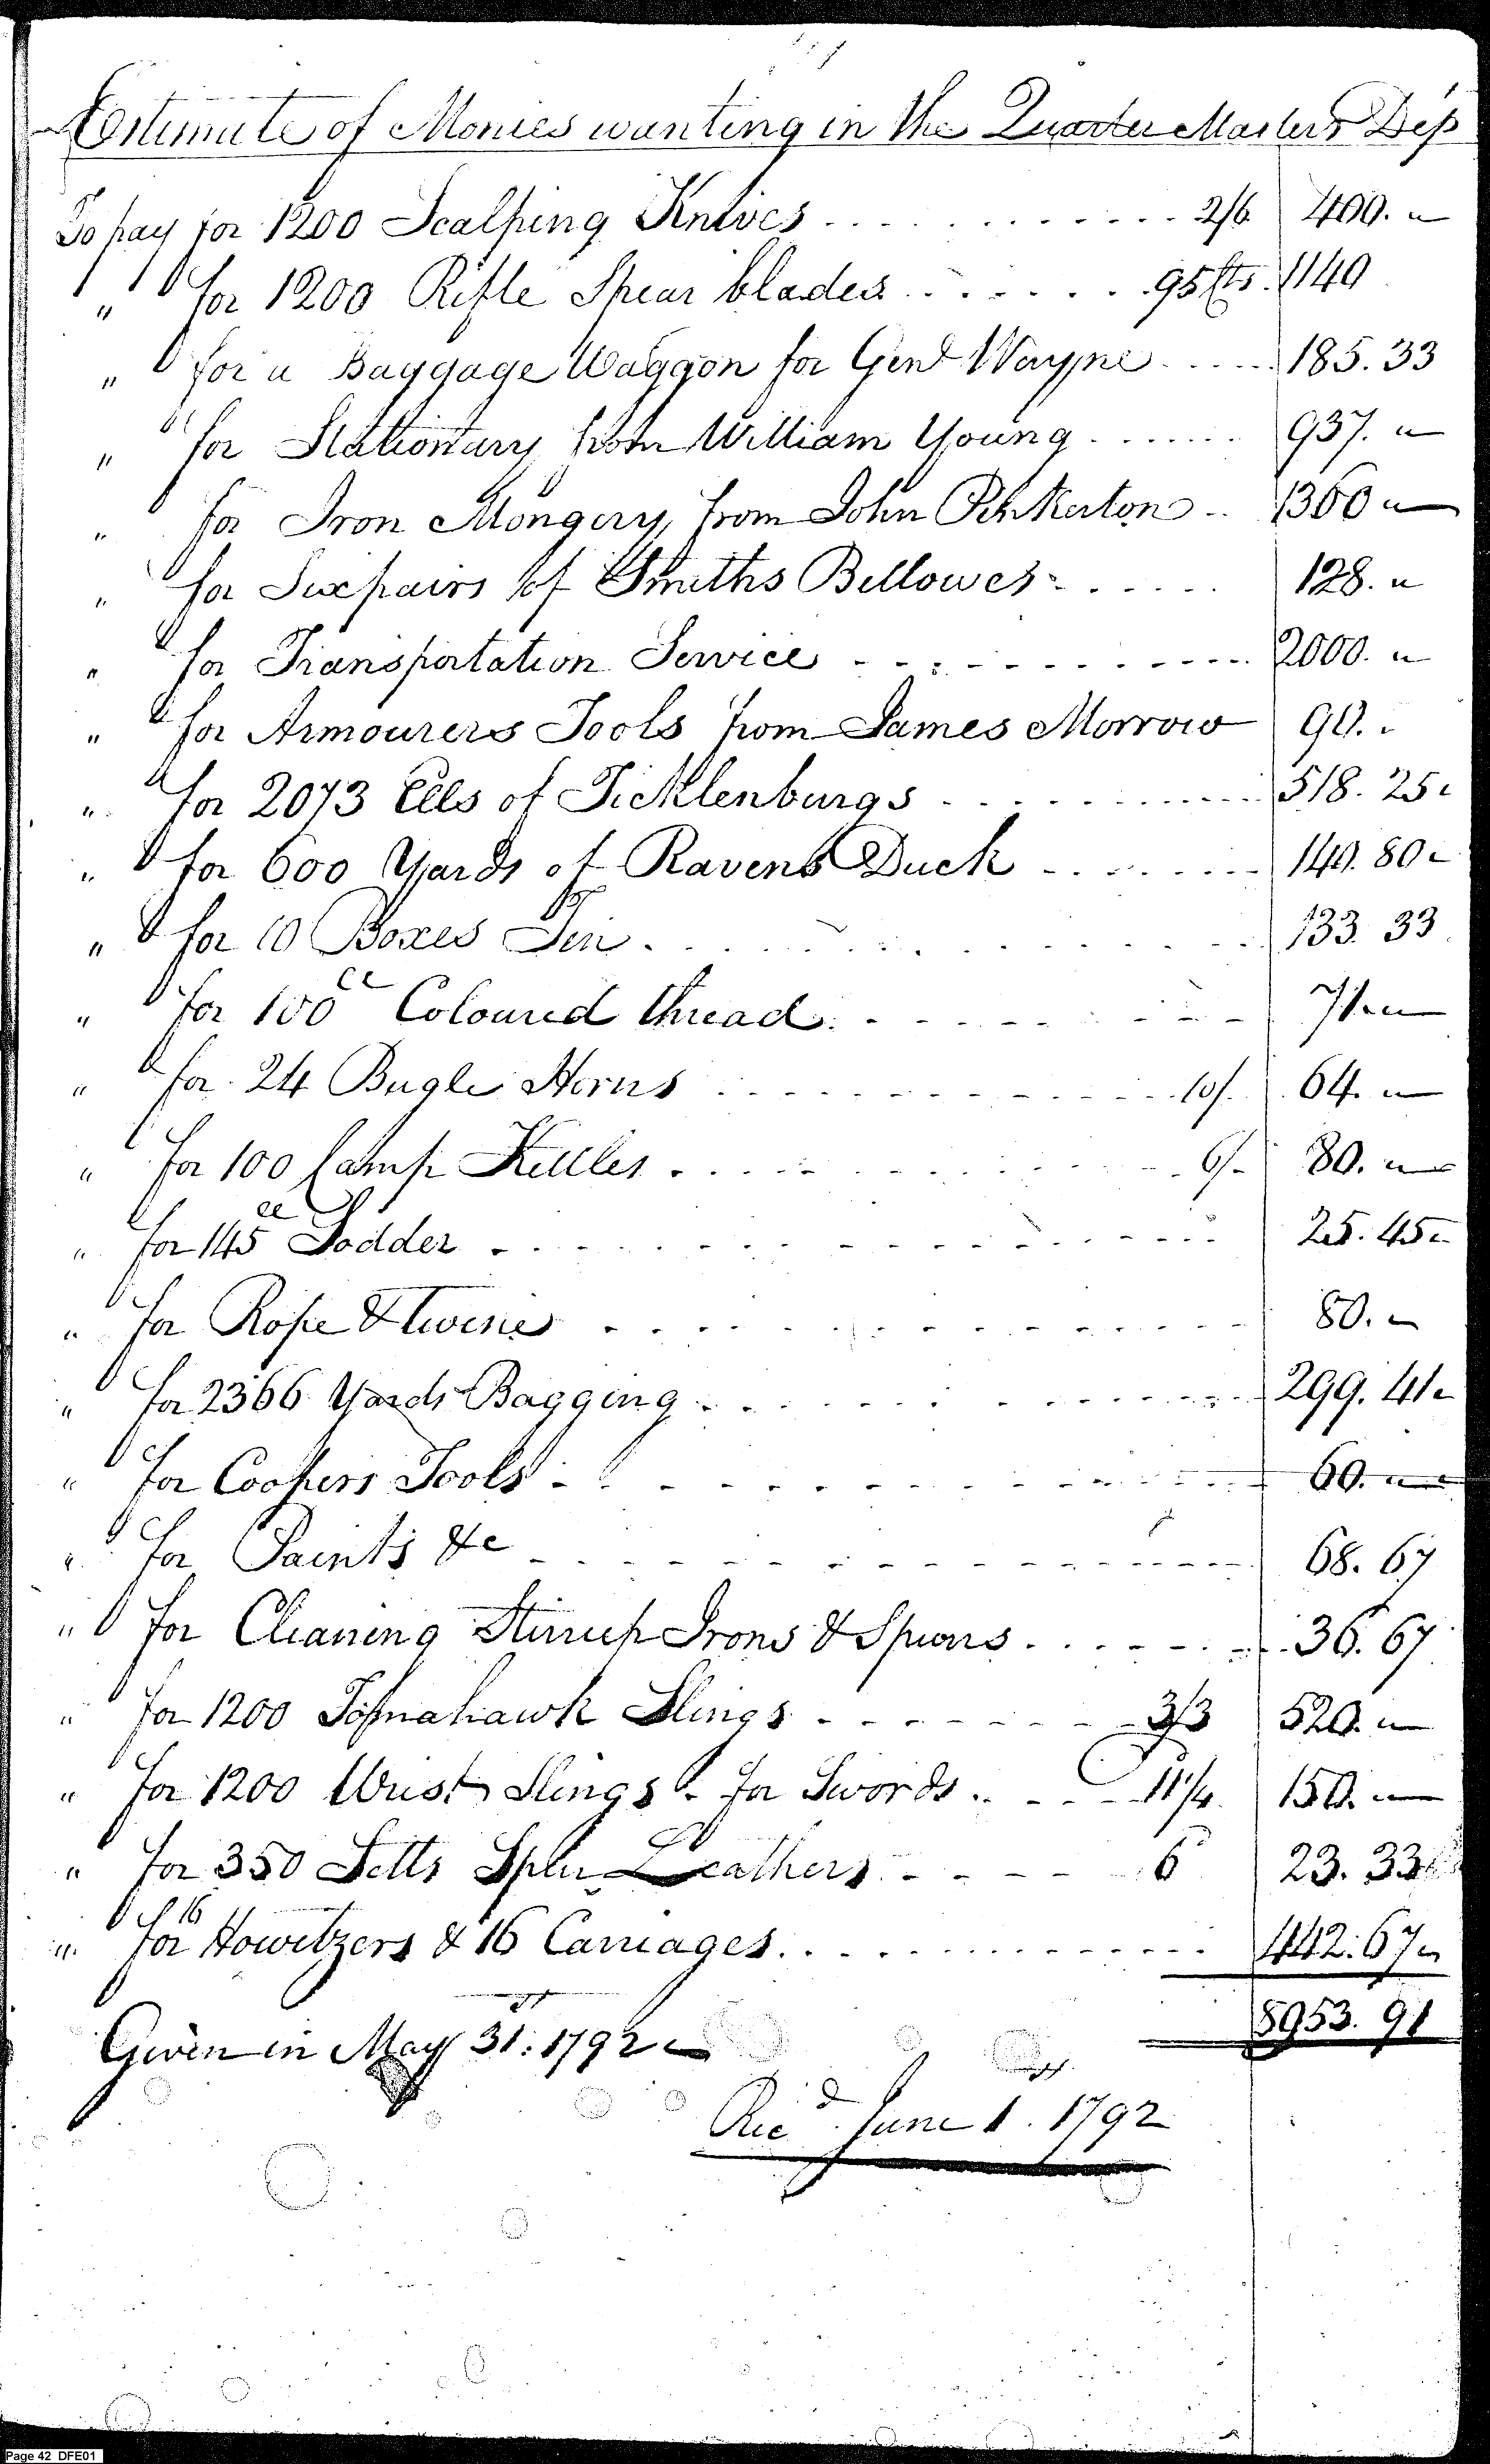 Estimate of Monies wanting in the Quarter Master's Dep
To pay for 1200 Scalping Knives ............ 2/6 400. "
" for 1200 Rifle Spear blades ....... 95 Cts. 1140
" for a Baggage Waggon for Genl Wayne ..... 185. 33
" for Stationary from William Young ....... 937. "
" for Iron Mongery, from John Pinkerton .. 1360 "
" for Six pairs of Smiths Bellowes ...... 128. "
" for Transportation Service ............ 2000. "
" for Armourers Tools from James Morrow 90. "
" for 2073 Ells of Ticklenburgs ............ 518. 25 "
" for 600 Yards of Ravens Duck ........ 140. 80 "
" for 10 Boxes Tin ............... 133. 33
" for 100 lb Coloured thread .......... 71. "
" for 24 Bugle Horns .............. 10/. 64. "
" for 100 Camp Kettles ............ 6/- 80. "
" for 145 lb Sodder .............. 25. 45 "
" for Rope & twine ............... 80. "
" for 2366 Yards Bagging ............ 299. 41 "
" for Coopers Tools .............. 60. "
" for Paints &c .............. 68. 67
" for Cleaning Stirrup Irons & Spurs ....... 36. 67
" for 1200 Tomahawk Slings ........ 3/3 520. "
" for 1200 Wrist Slings - for Swords ..... 11 1/4 150. "
" for 350 Setts Spur Leathers ..... 6 23. 33
" for 16 Howitzers & 16 Carriages ............. 442. 67 "
8953. 91
Given in May 31st: 1792
Recd. June 1st. 1792
Page 42 DFE01